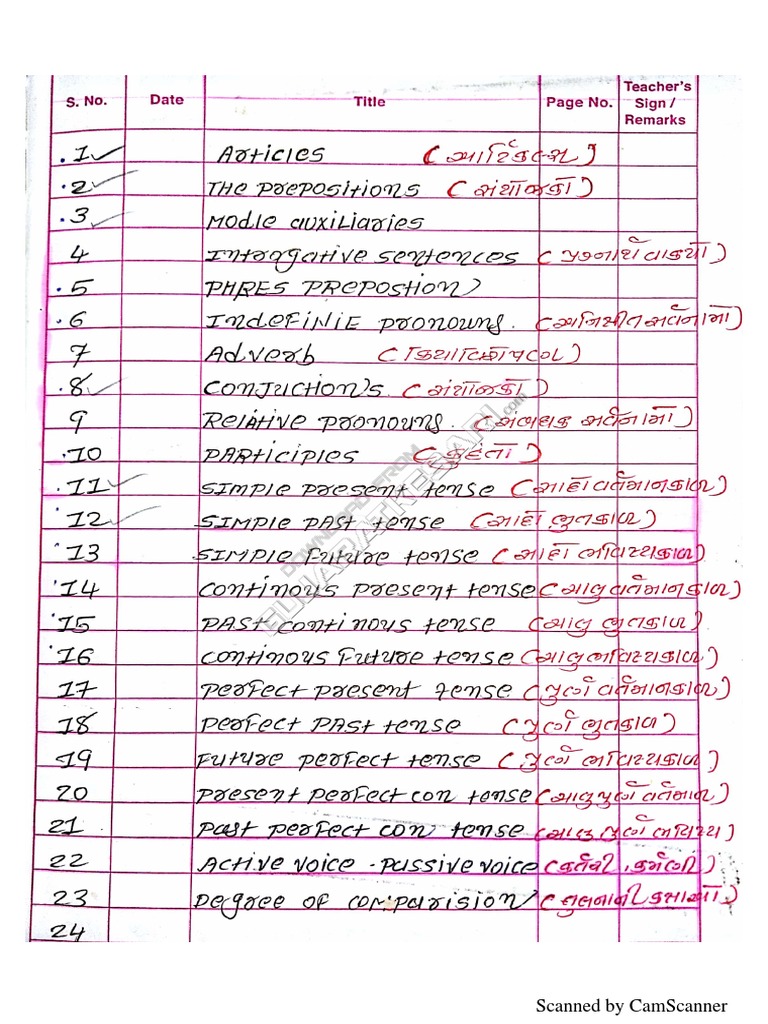 S. No. Date Title Page No. Teacher's Sign / Remarks
1 Articles (આર્ટિકલ્સ)
2 THe prepositions (સંયોજકો)
3 Modle auxiliaries
4 Introgative sentences (પ્રશ્નાર્થ વાક્યો)
5 PHRES PREPOSTION
6 INDEFINIE pronouns.
7 Adverb
8 CONJUCTION'S. (સંયોજકો)
9 Relative pronouns.
10 PARTICIPLES (કૃદંતો)
11 SIMPLE present tense (સાદો વર્તમાનકાળ)
12 SIMPLE PAST tense (સાદો ભુતકાળ)
13 SIMPLE Future tense (સાદો ભવિષ્યકાળ)
14 continous present tense (ચાલુ વર્તમાનકાળ)
15 PAST continous tense (ચાલુ ભુતકાળ)
16 continous Future tense (ચાલુ ભવિષ્યકાળ)
17 perfect present tense (પુર્ણ વર્તમાનકાળ)
18 perfect PAST tense (પુર્ણ ભુતકાળ)
19 Future perfect tense (પુર્ણ ભવિષ્યકાળ)
20 present perfect con tense (ચાલુ પુર્ણ વર્તમાન)
21 past perfect con tense (ચાલુ પુર્ણ ભવિષ્ય)
22 Active voice - passive voice (કર્તરી, કર્મણી)
23 Degree of comparision
24
DOWNLOAD FROM
Scanned by CamScanner